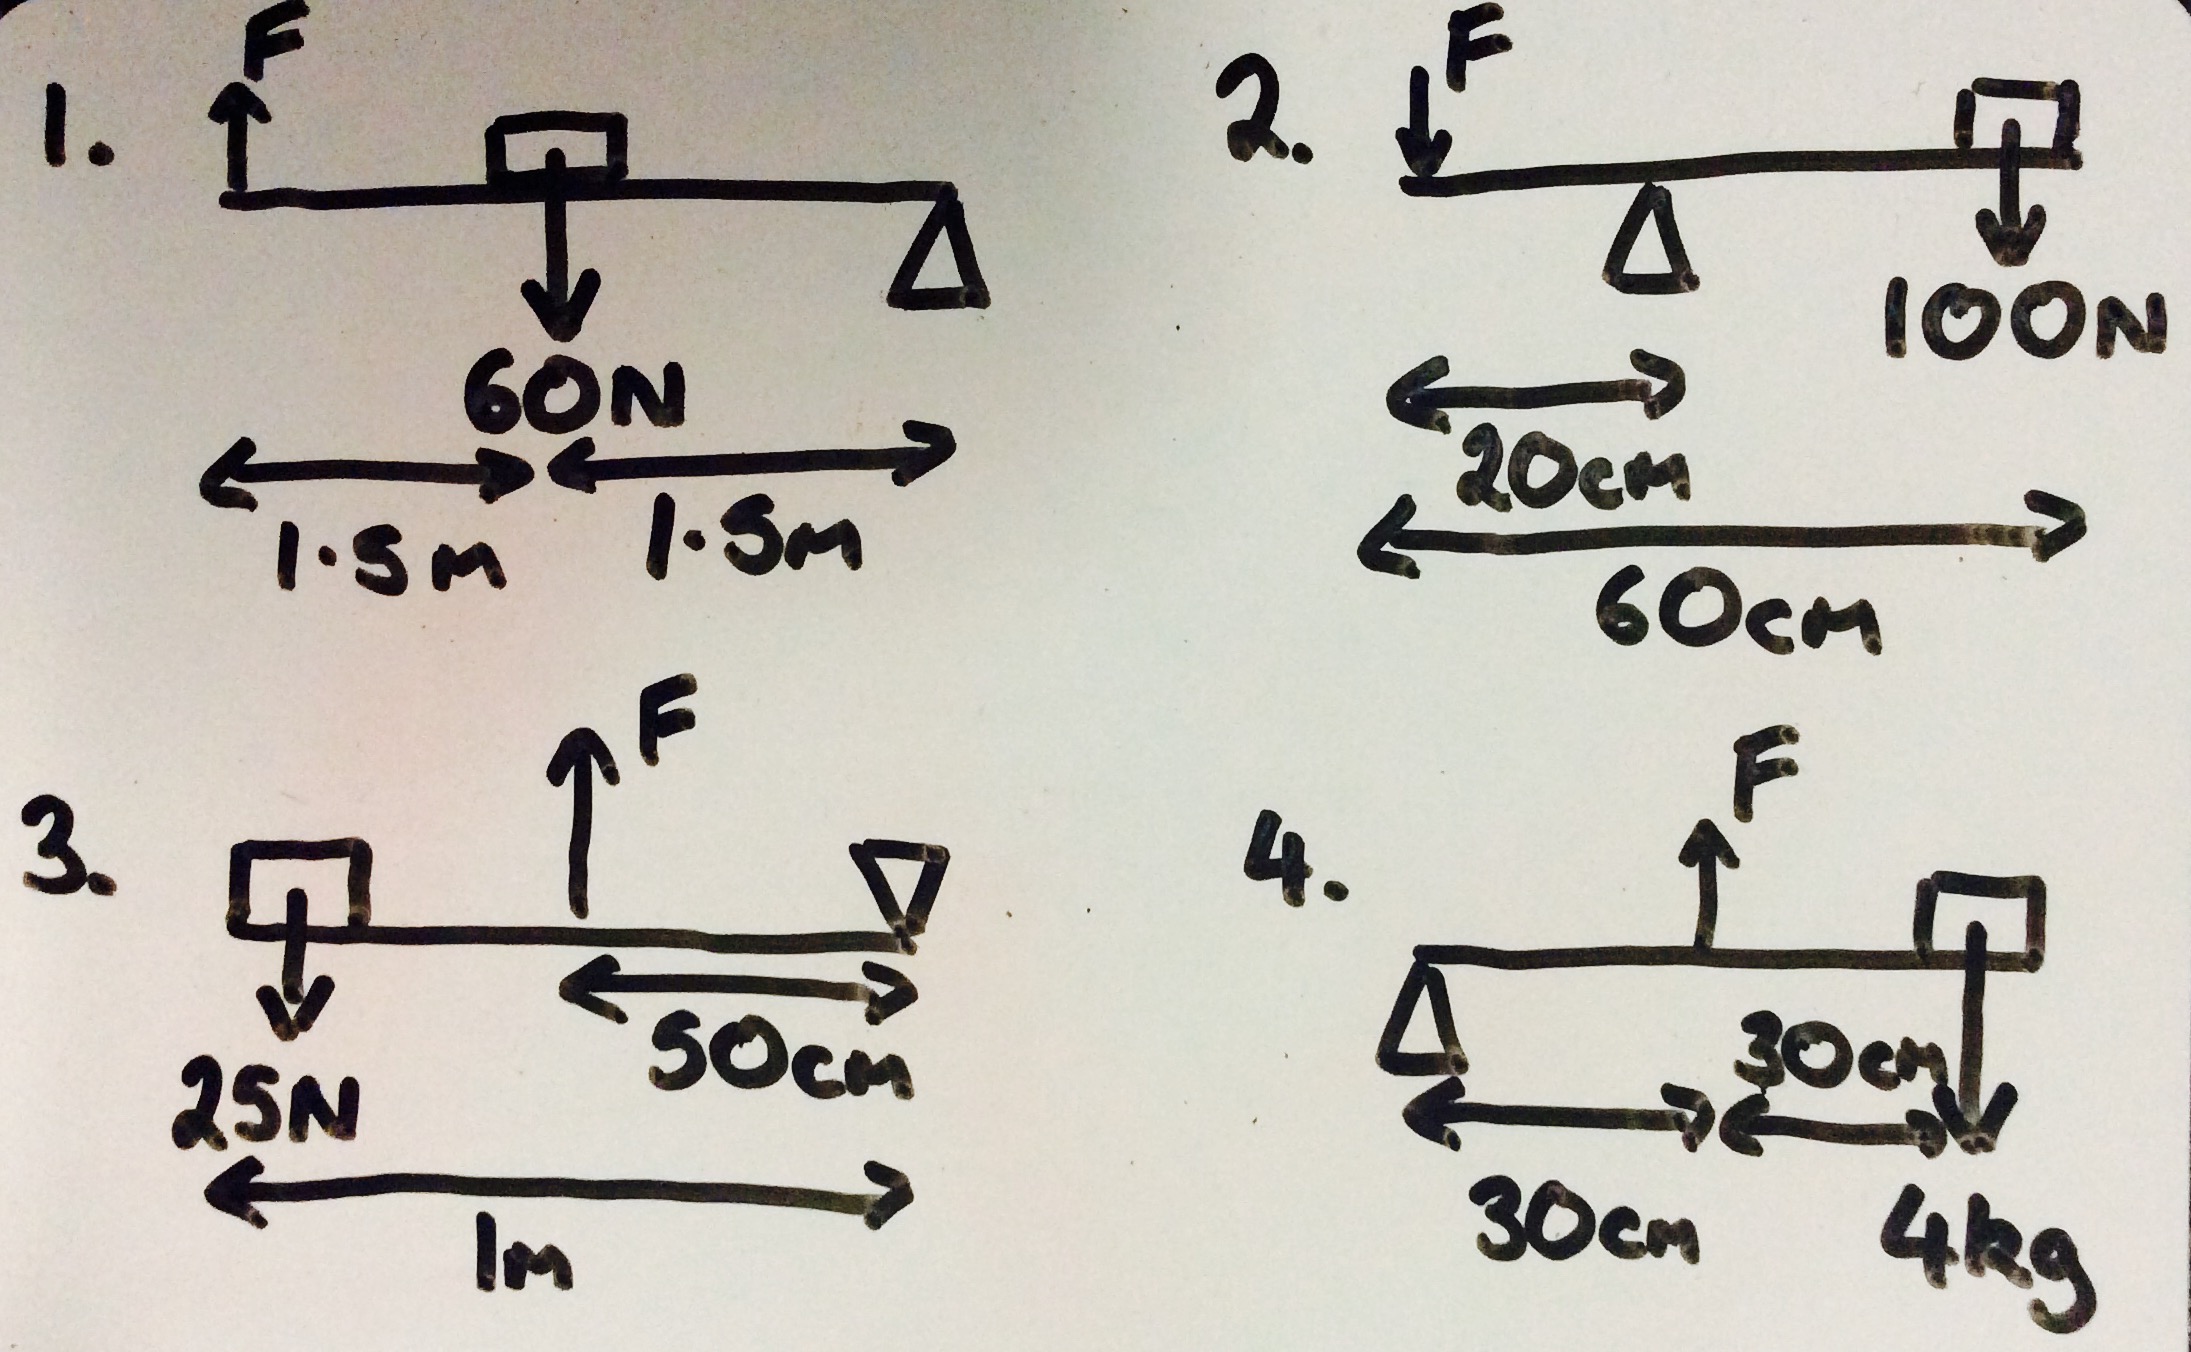 1.
F
60N
1.5m
1.5m
2.
F
100N
20cm
60cm
3.
F
25N
50cm
1m
4.
F
30cm
30cm
4kg